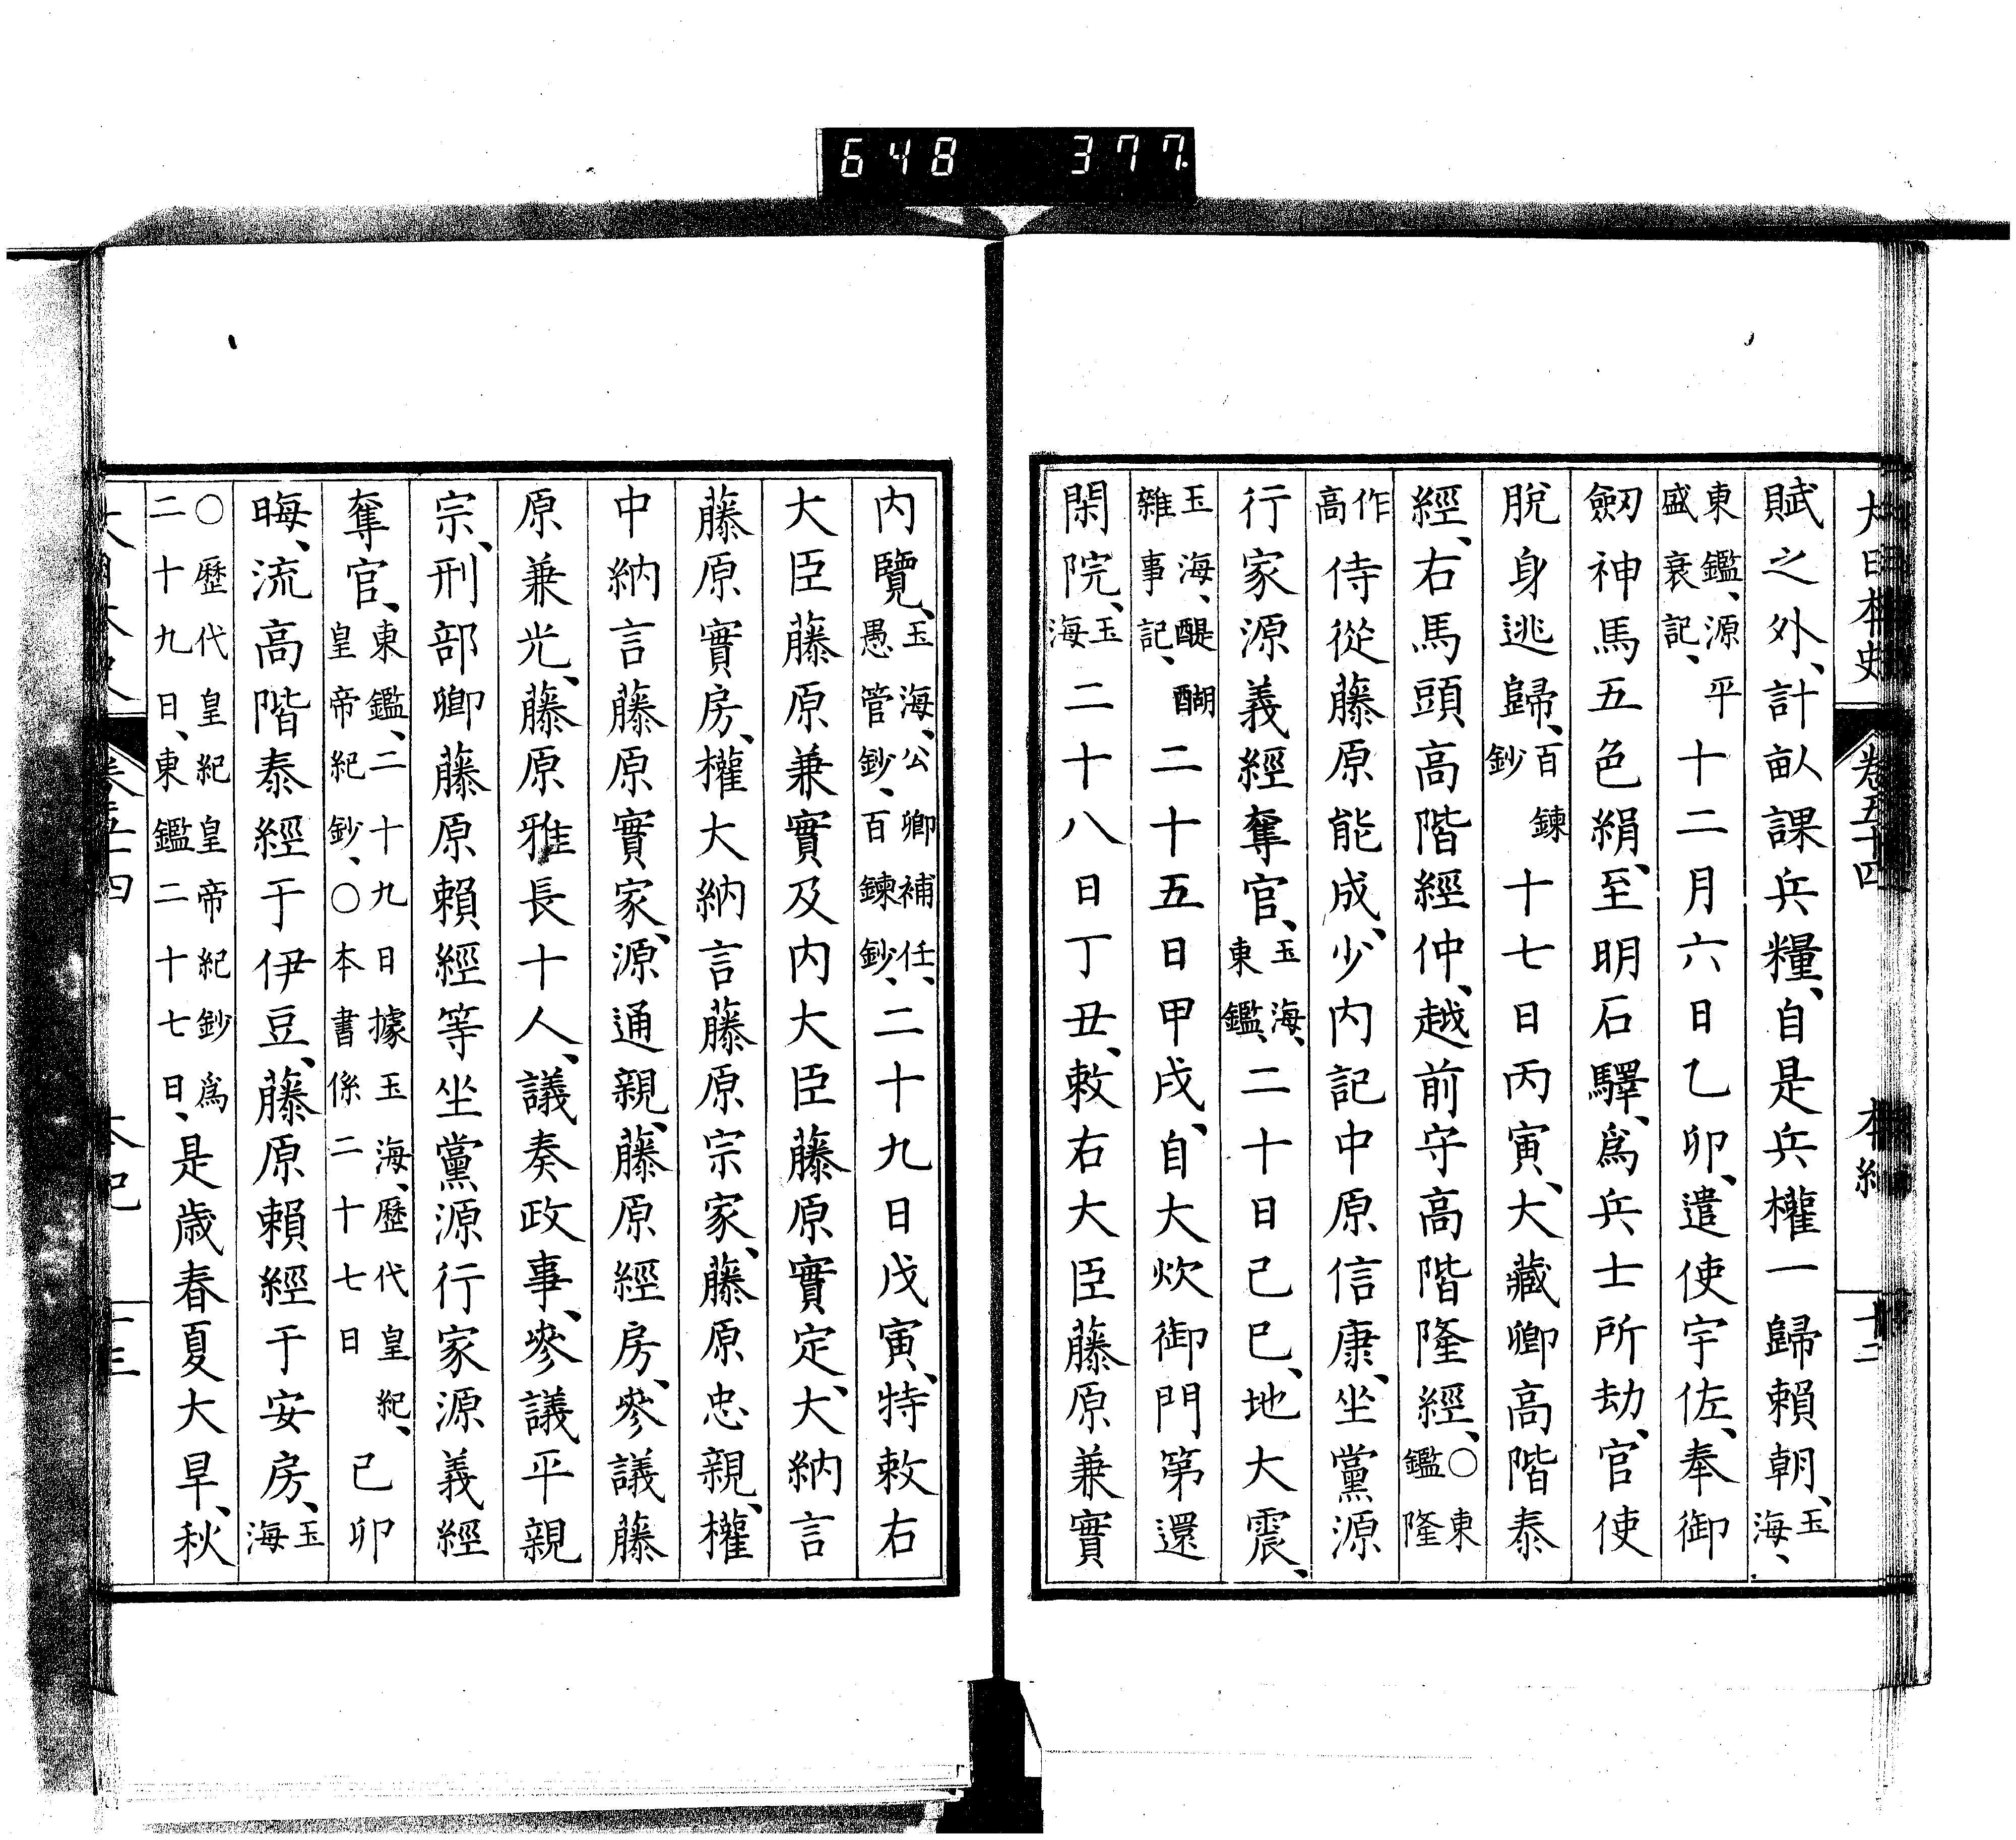 648 377
大日本史 卷五十四 本紀 十二
賦之外、計畝課兵糧、自是兵權一歸賴朝、玉海、
東鑑、源平盛衰記、十二月六日乙卯、遣使宇佐、奉御
劔神馬五色絹、至明石驛、爲兵士所劫、官使
脫身逃歸、百鍊鈔十七日丙寅、大藏卿高階泰
經、右馬頭高階經仲、越前守高階隆經、○東鑑隆
作高侍從藤原能成、少內記中原信康、坐黨源
行家源義經奪官、玉海、東鑑、二十日己巳、地大震、
玉海、醍醐雜事記、二十五日甲戌、自大炊御門第還
閑院、玉海二十八日丁丑、敕右大臣藤原兼實
内覽、玉海、公卿補任、愚管鈔、百鍊鈔、二十九日戊寅、特敕右
大臣藤原兼實及内大臣藤原實定、大納言
藤原實房、權大納言藤原宗家、藤原忠親、權
中納言藤原實家、源通親、藤原經房、參議藤
原兼光、藤原雅長十人、議奏政事、參議平親
宗、刑部卿藤原賴經等坐黨源行家源義經
奪官、東鑑、二十九日據玉海、歷代皇紀、皇帝紀鈔、○本書係二十七日己卯
晦、流高階泰經于伊豆、藤原賴經于安房、玉海
○歷代皇紀皇帝紀鈔爲二十九日、東鑑二十七日、是歲春夏大旱、秋